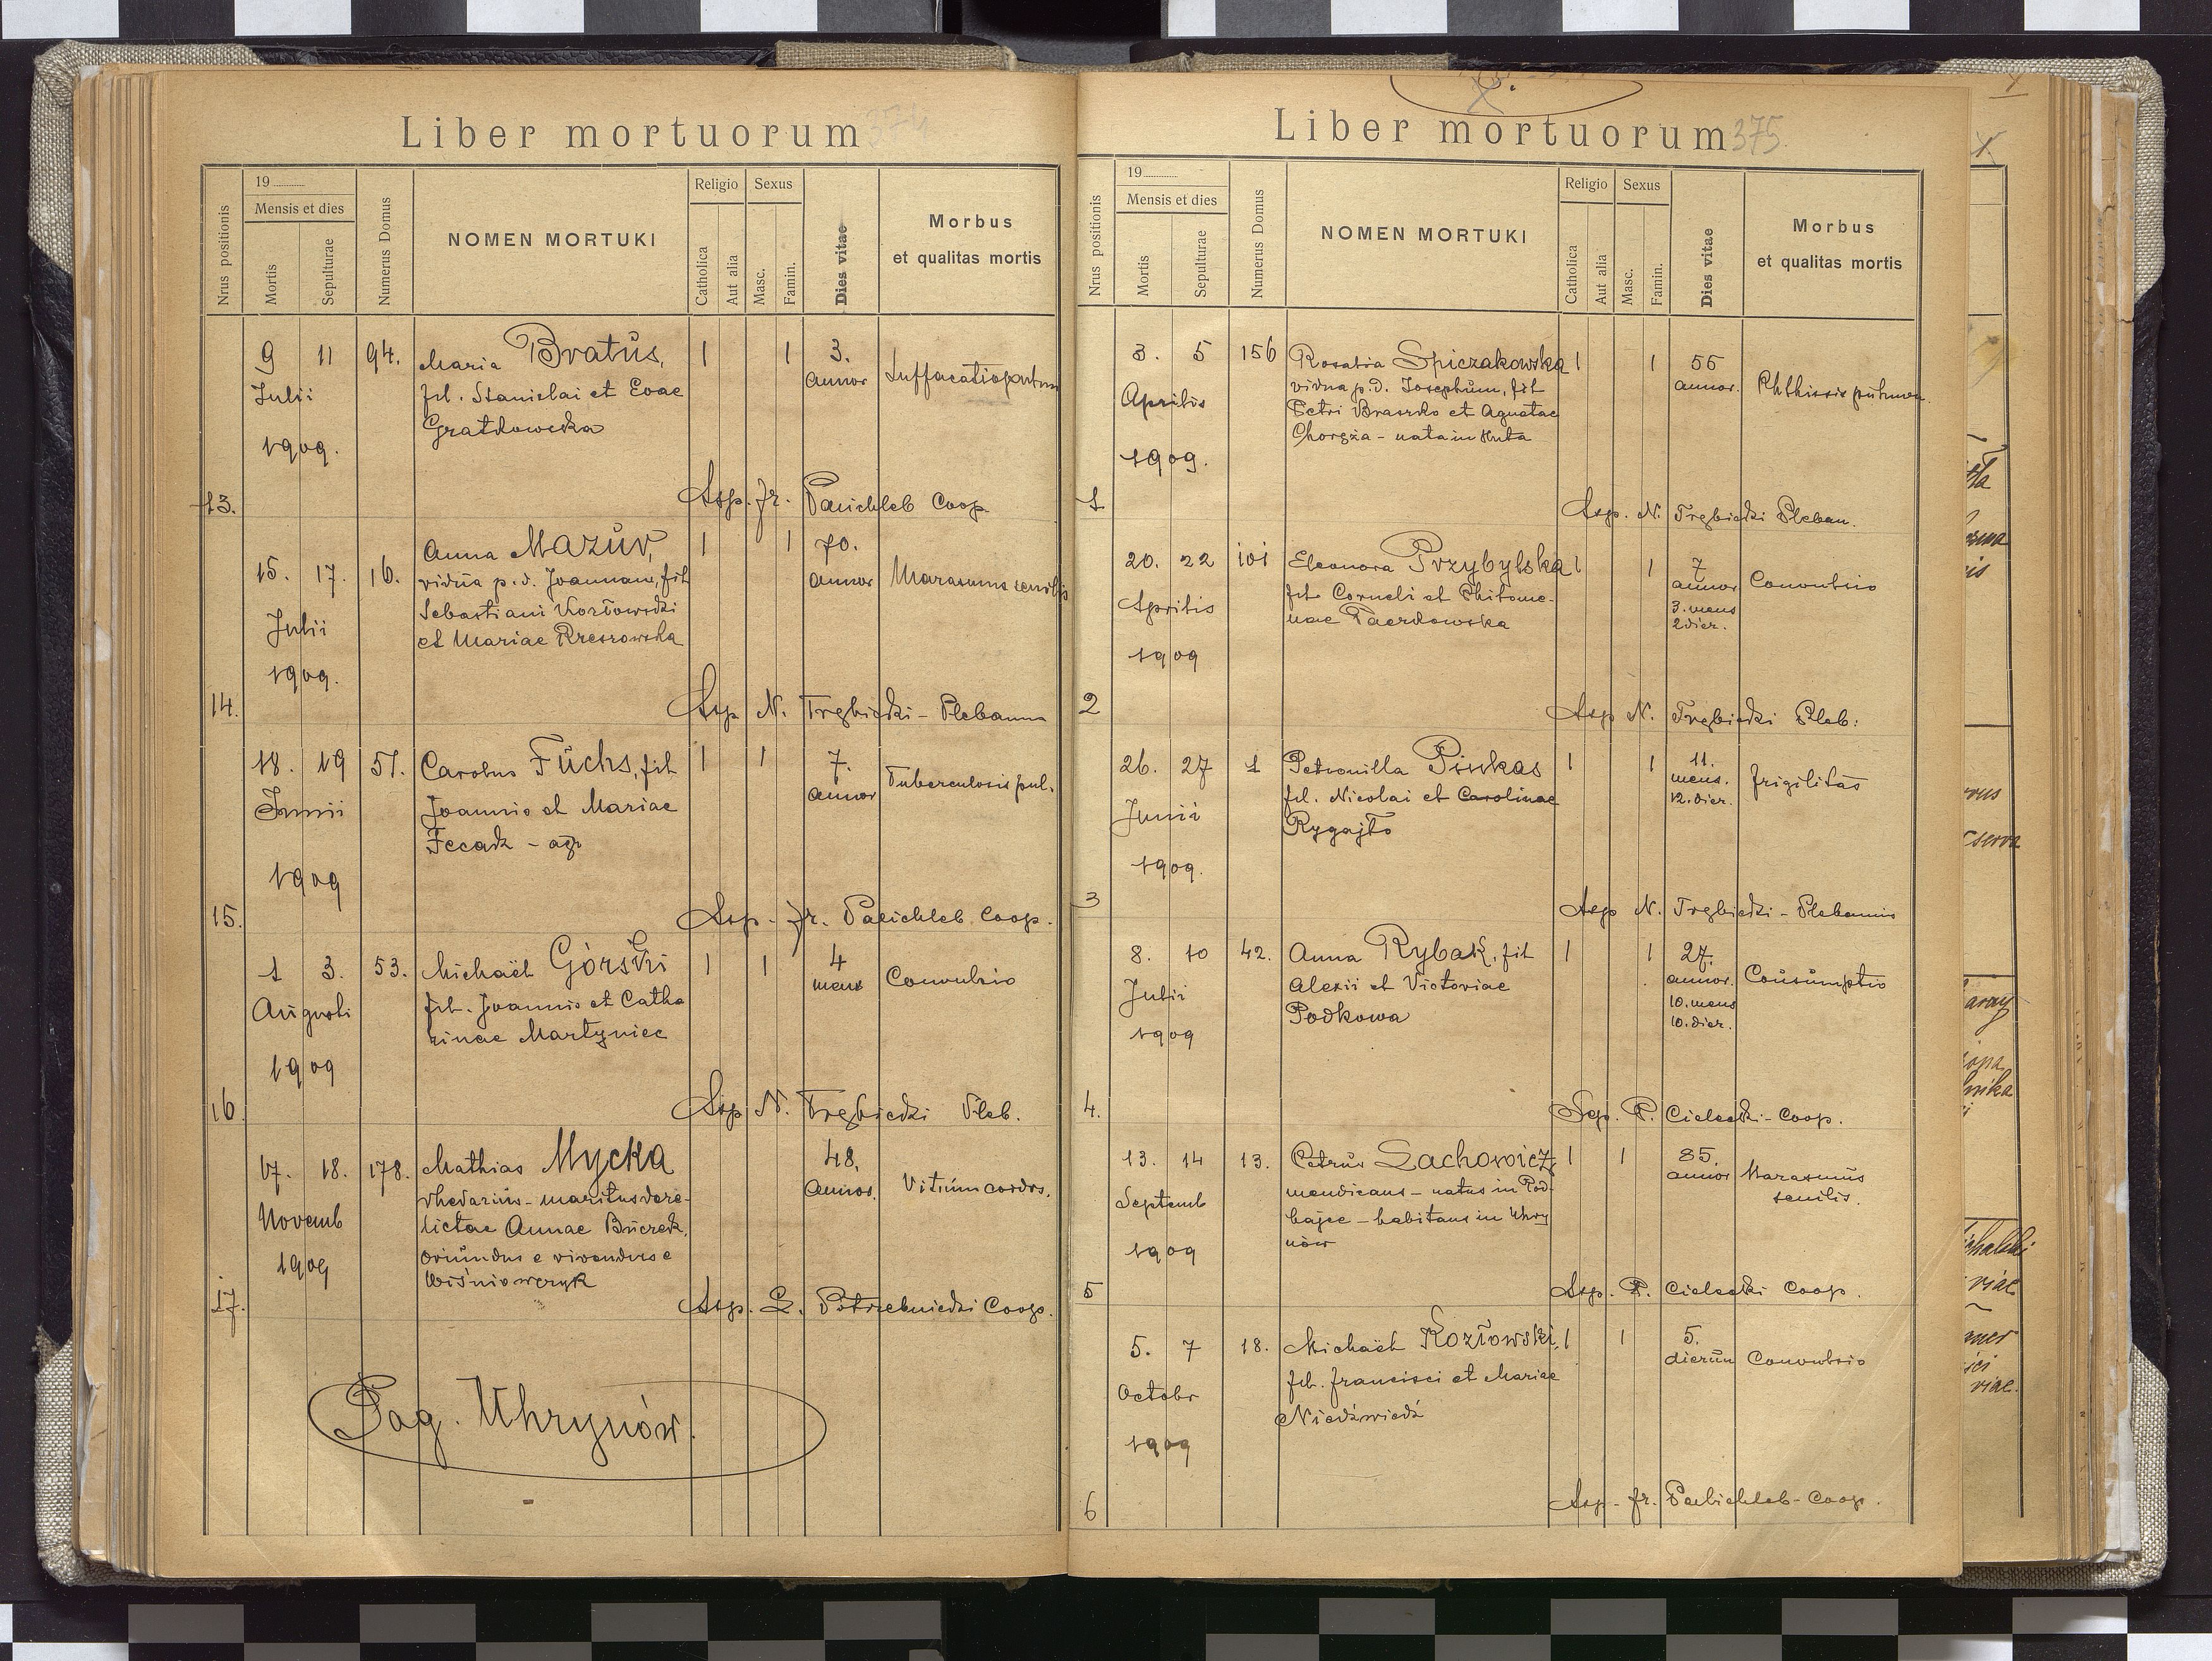 Liber mortuorum 374
Nrus positionis
19
Mensis et dies
Mortis
Sepulturae
Numerus Domus
NOMEN MORTUKI
Religio
Catholica
Aut alia
Sexus
Masc.
Famin.
Dies vitae
Morbus
et qualitas mortis
9 11 94. Maria Bratŭs, 1 1 3.
Julii fil. Stanislai et Evae annor
Gratkowska
1909.
13. Asp. fr. Coop.
15. 17. 16. Anna Mazŭr, 1 1 70.
vidŭa p. d. Joannem, fil annor Marasmus senilis
Julii Sebastiani Kozłowski
et Mariae Rzeszowska
1909.
14. Asp N. Trębicki - Plebanus
18. 19 57. Carolus Fŭchs, fil 1 1 7. Tuberculosis pul.
Junii Joannis et Mariae annor
Fecak - agr
1909
15. Asp. fr. Coop.
1 3. 53. Michaël Górski 1 1 4 Convulsio
Augusti fil. Joannis et Catha mens
rinae Martyniec
1909
16. Asp N. Trębicki Pleb.
17. 18. 178. Mathias Mycka 48. Vitium cordis.
rhedariŭs - maritus dere- annor.
Novemb lictae Annae Bŭczek,
1909 oriŭndus e vivendus e
Wiśniowczyk
17. Asp. L. Potrzebnicki Coop.
Pag. Uhrynów.
Liber mortuorum 375.
Nrus positionis
19
Mensis et dies
Mortis
Sepulturae
Numerus Domus
NOMEN MORTUKI
Religio
Catholica
Aut alia
Sexus
Masc.
Famin.
Dies vitae
Morbus
et qualitas mortis
3. 5 156 Rosalia Spiczakowska 1 1 55
Aprilis vidua p. d. Josephŭm, fil annor. Phthissis pulmon.
Petri et Agnetae
1909. - nata in Huta
1 Asp. N. Trębicki Pleban.
20. 22 101 Eleonora Przybylska 1 1 7 Convulsio
Aprilis fil. Corneli et Philome- annor
nae 3. mens
2 dier.
1909
2 Asp N. Trębicki Pleb:
26. 27 1 Petronilla Pinkas 1 1 11. frigilitas
fil. Nicolai et Carolinae mens.
Junii Rygajło 12. dier.
1909.
3 Asp N. Trębicki - Plebanus
8. 10 42. Anna Rybak, fil 1 1 27. Consŭmptio
Julii Alexii et Victoriae annor.
Podkowa 10. mens
1909 10. dier.
4. Asp. P. Cielecki - Coop.
13. 14 13. Petrŭs Lachowicz, 1 1 85. Marasmŭs
Septemb mendicans - natus in Pod- annor senilis.
hajce - habitans in Uhry
1909 nów
5 Asp. P. Cielecki Coop.
5. 7 18. Michaël Kozłowski, 1 1 5. Convulsio
Octobr fil. francisci et Mariae dierŭm
Niedźwiedź
1909
6 Asp. fr. Coop.